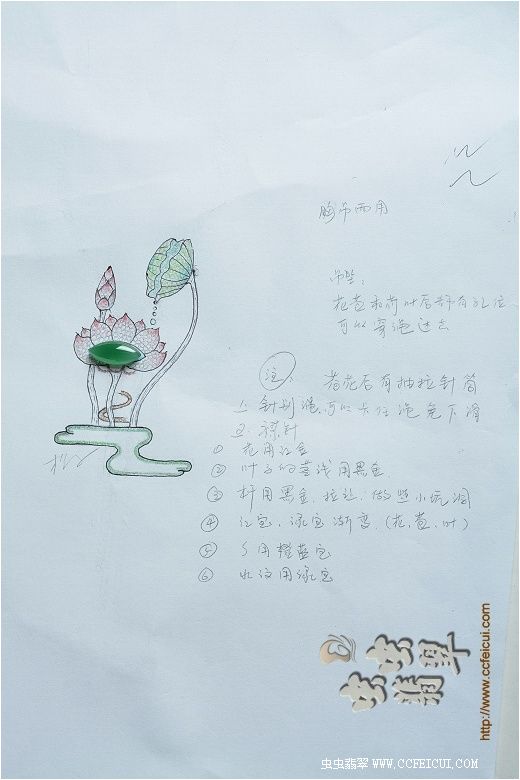 胸吊两用
吊坠:
花苞和荷叶后都有孔位
可以穿绳过去
注: 荷花后有抽拉针筒
1. 针划绳可以卡住绳免下滑
2. 襟针
① 花用红金
② 叶子的茎线用黑金
③ 杆用黑金,拉丝,做些小坑洞
④ 红宝,绿宝渐变(花,苞,叶)
⑤ S用橙蓝宝
⑥ 水纹用绿宝
虫虫翡翠
http://www.ccfeicui.com
虫虫翡翠 WWW.CCFEICUI.COM